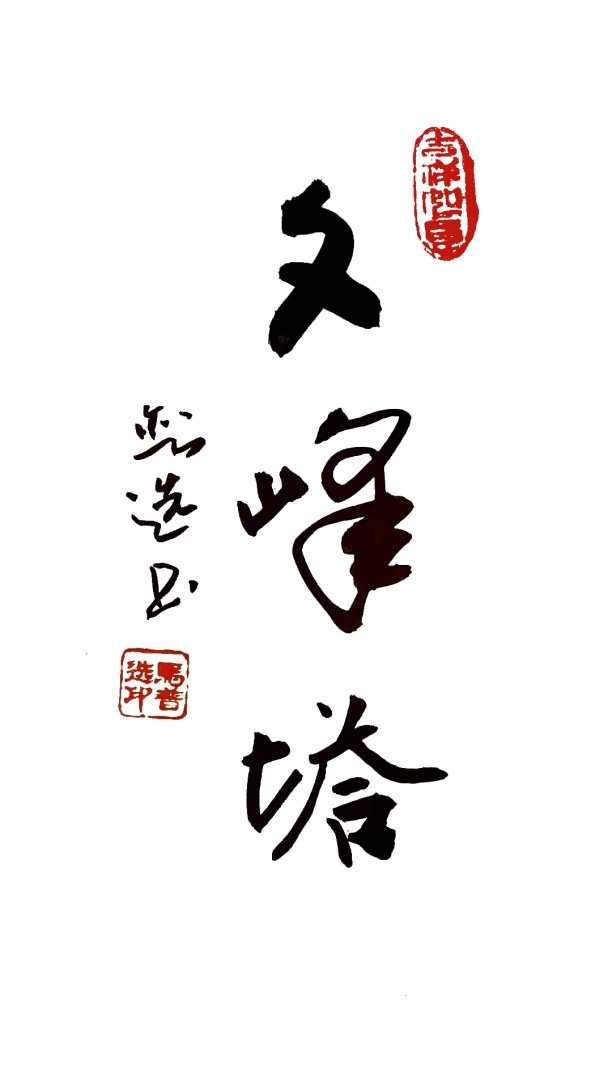 吉祥如意
文峰塔
普选书
馬普
选印